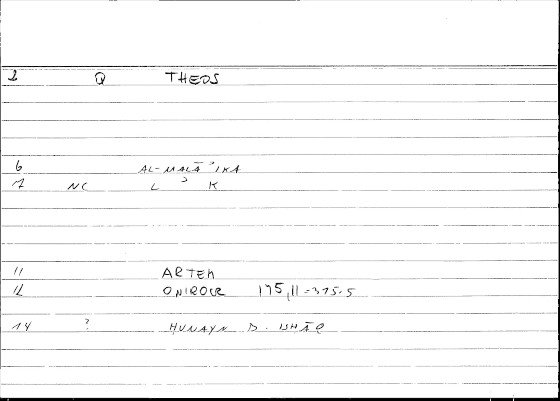 2 Q THEOS
6 AL-MALĀʾIKA
7 NC L ʾ K
11 ARTEM
12 ONIROCR 175,11-375.5
14 ? HUNAYN B. ISHĀQ